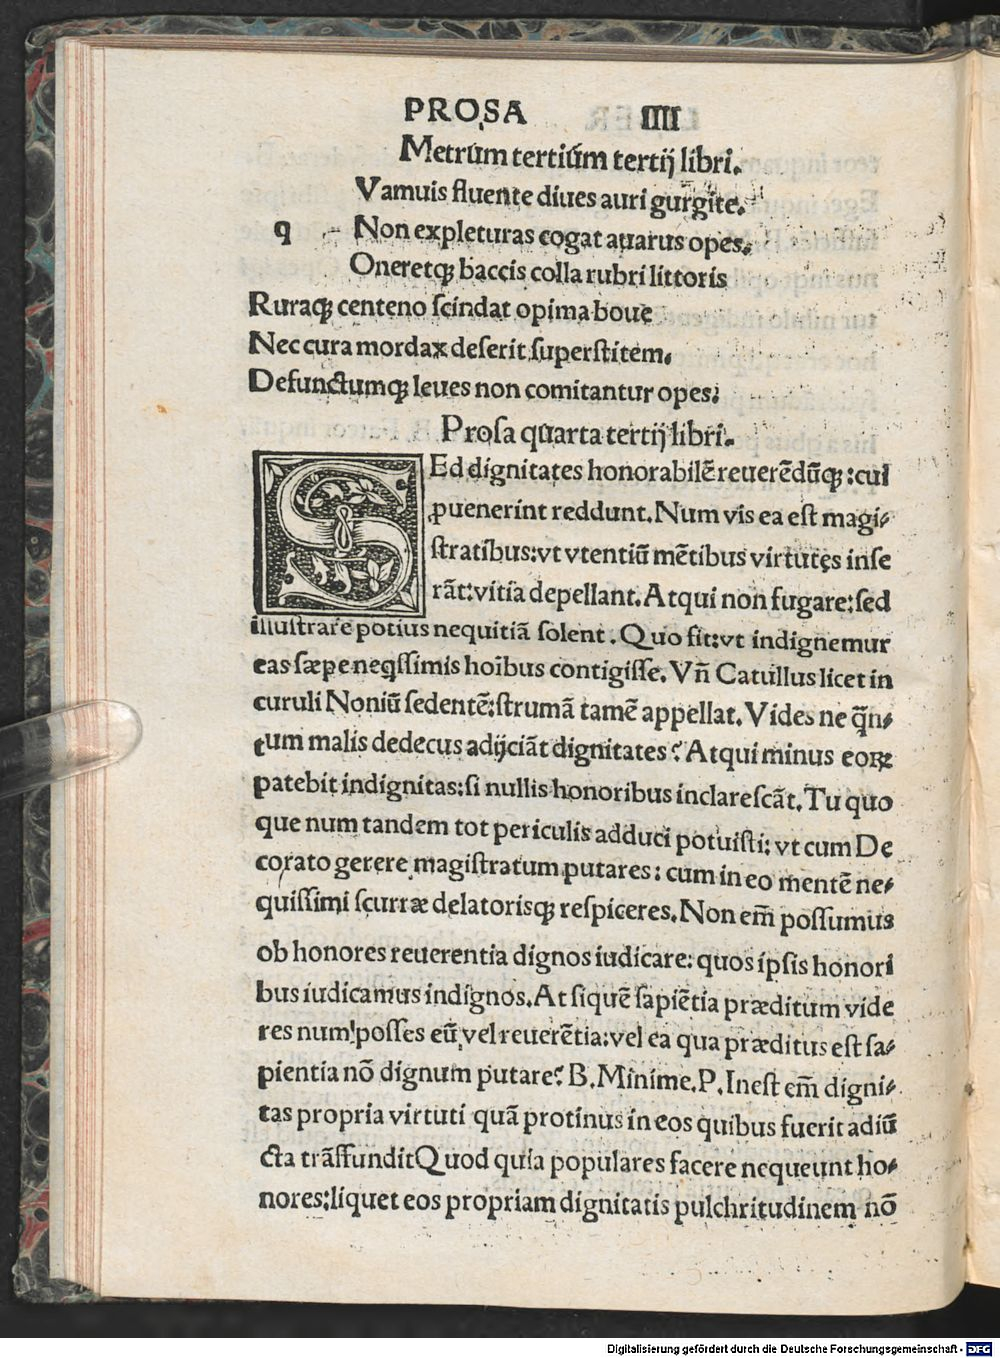 PROSA IIII
Metrum tertiũm tertij libri.
Vamuis fluente diues auri gurgite.
q Non expleturas cogat auarus opes.
Oneretqꝫ baccis colla rubri littoris
Ruraqꝫ centeno scindat opima boue
Nec cura mordax deserit superstitem.
Defunctumqꝫ leues non comitantur opes.
Prosa quarta tertij libri.
SEd dignitates honorabilẽ reuerẽdũqꝫ: cui
ꝑuenerint reddunt. Num vis ea est magi-
stratibus: vt vtentiũ mẽtibus virtutes inse
rãt: vitia depellant. Atqui non fugare: sed
illustrare potius nequitiã solent. Quo fit: vt indignemur
eas sæpe neqssimis hoĩbus contigisse. Vñ Catullus licet in
curuli Noniũ sedentẽ: strumã tamẽ appellat. Vides ne q̃n-
tum malis dedecus adijciãt dignitates? Atqui minus eoꝝ
patebit indignitas: si nullis honoribus inclarescãt. Tu quo
que num tandem tot periculis adduci potuisti: vt cum De
corato gerere magistratum putares: cum in eo mentẽ ne-
quissimi scurræ delatorisqꝫ respiceres. Non em̃ possumus
ob honores reuerentia dignos iudicare: quos ipsis honori
bus iudicamus indignos. At siquẽ sapiẽtia præditum vide
res num posses eũ vel reuerẽtia: vel ea qua præditus est sa-
pientia nõ dignum putare? B. Minime. P. Inest em̃ digni-
tas propria virtuti quã protinus in eos quibus fuerit adiũ
cta trãsfundit Quod quia populares facere nequeunt ho-
nores: liquet eos propriam dignitatis pulchritudinem nõ
Digitalisierung gefördert durch die Deutsche Forschungsgemeinschaft - DFG